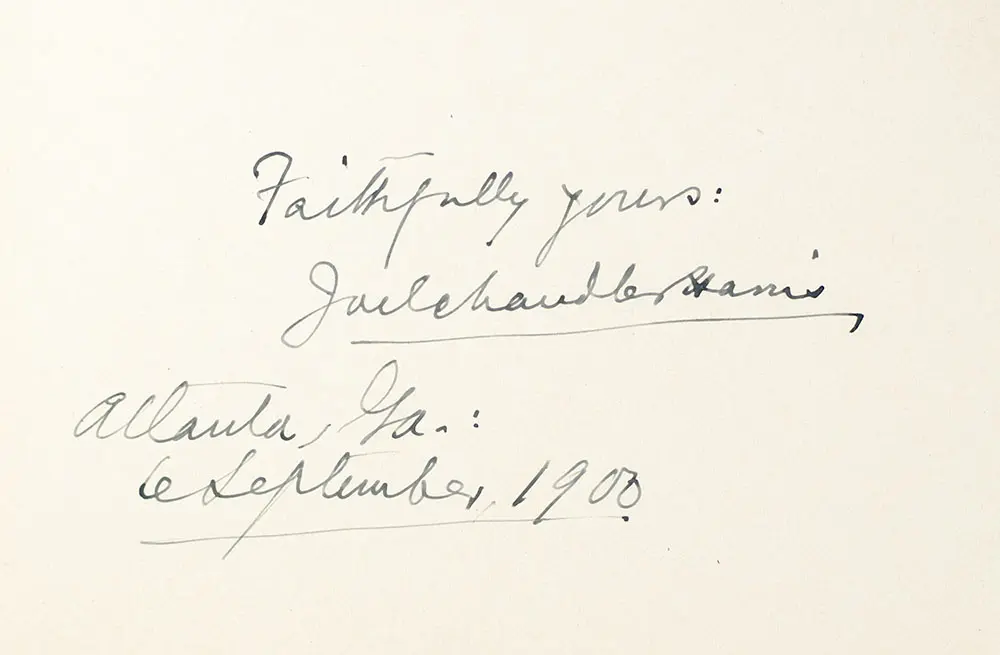 Faithfully yours:
Joel Chandler Harris
Atlanta, Ga.:
6 September, 1903